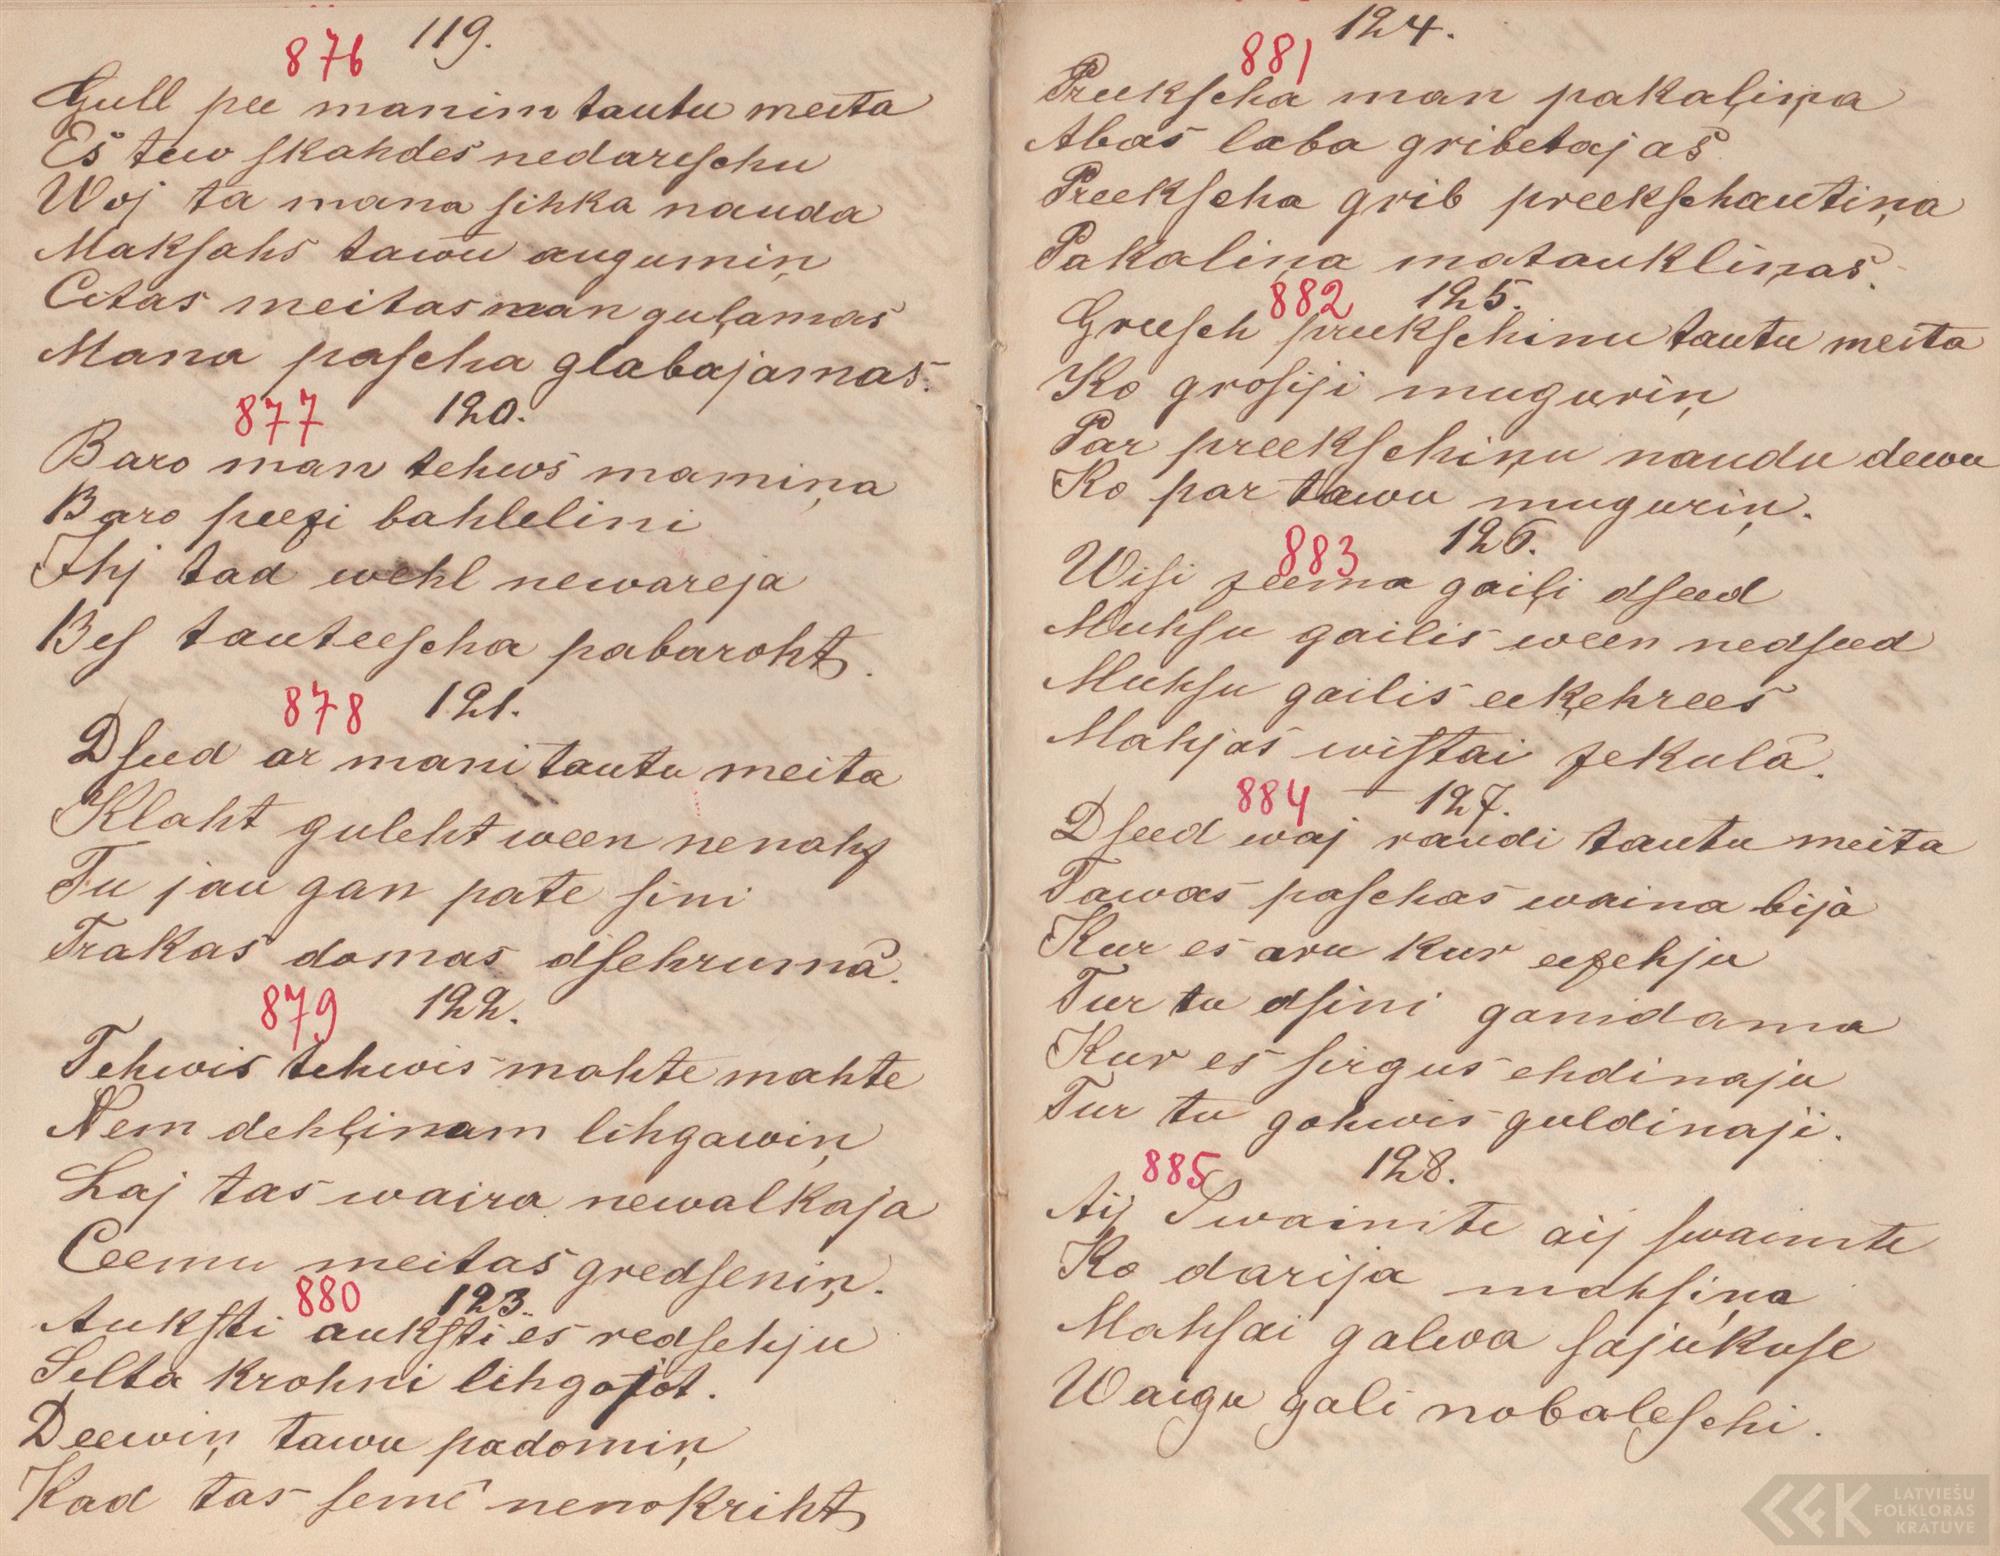 876 119.
Gull pee manim tautu meita
Es tew skahdes nedareschu
Woj ta mana sihka nauda
Maksahs tawu augumiņ
Citas meitas man guļamas
Mana pascha glabajamas.
877 120.
Baro man tehws mamiņa
Baro peezi bahlelini
Ihj tad wehl newareja
Bes tauteescha pabaroht.
878 121.
Dseed ar mani tautu meita
Klaht guleht ween nenahz
Tu jau gan pate sini
Trakas domas dsehrumâ.
879 122.
Tehwis tehwis mahte mahte
Ņem dehļinam lihgawiņ
Laj tas waira newalkaja
Ceemu meitas gredseniņ.
880 123.
Auksti auksti es redsehju
Selta krohni lihgojot.
Deewiņ tawu padomiņ
Kad tas semê nenokriht
881 124.
Preekscha man pakaļiņa
Abas laba gribetajas
Preekscha grib preekschautiņa
Pakaliņa mataukliņas.
882 125.
Greesch preekschinu tautu meita
Ko grosiji muguriņ
Par preekschiņu naudu dewu
Ko par tawu muguriņ.
883 126.
Wisi zeema gaiļi dseed
Muhsu gailis ween nedseed
Muhsu gailis eeķehrees
Mahjas wistai zekulâ.
884 127.
Dseed waj raudi tautu meita
Tawas paschas waina bija
Kur es aru kur eezehju
Tur tu dsini ganidama
Kur es sirgus ehdinaju
Tur tu gohwis guldinaji.
885 128.
Aij Swainite aij swainite
Ko darija mahsiņa
Mahsai galwa sajukuse
Waigu gali nobaleschi.
LATVIEŠU
FOLKLORAS
KRĀTUVE